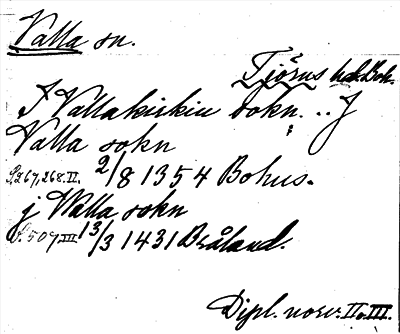 Valla sn.
Tjörns hd. Boh.
I Vallakirkiu sokn...J
Valla sokn
S. 267, 268. II. 2/8 1354 Bohus.
j Walla sokn
S. 507 III 13/3 1431 Bråland.
Dipl. norv. II o. III.